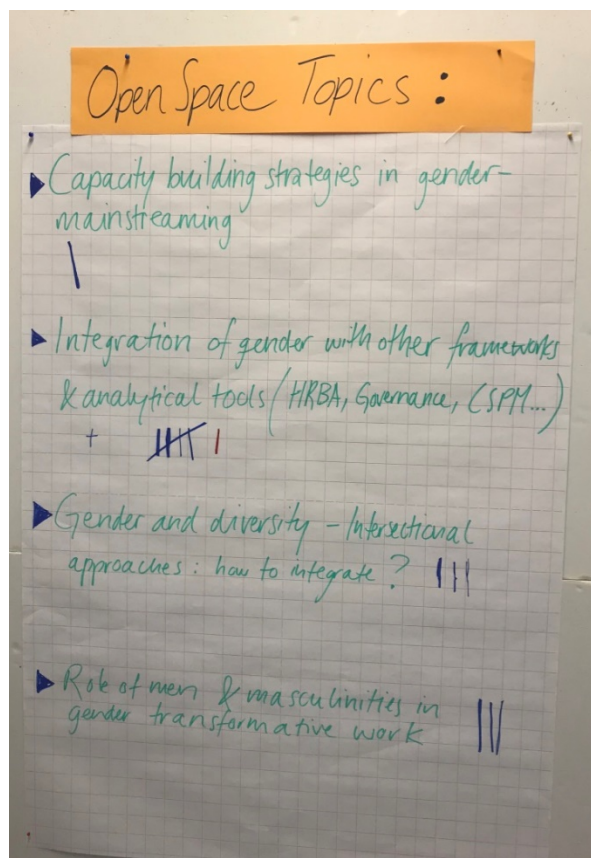 Open Space Topics :
Capacity building strategies in gender-
mainstreaming
Integration of gender with other frameworks
& analytical tools (HRBA, Governance, CSPM...)
+
Gender and diversity – Intersectional
approaches : how to integrate ?
Role of men & masculinities in
gender transformative work